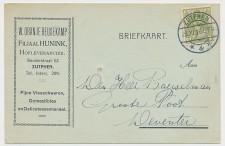 W. ORANJE BEUSEKAMP
FILIAAL HUNINK,
HOFLEVERANCIER.
Beukerstraat 52
ZUTPHEN.
Tel. Interc. 289.
Fijne Vleeschwaren,
Comestibles
en Delicatessenhandel.
BRIEFKAART.
ZUTPHEN
Den Heer
Groote Poot
Deventer